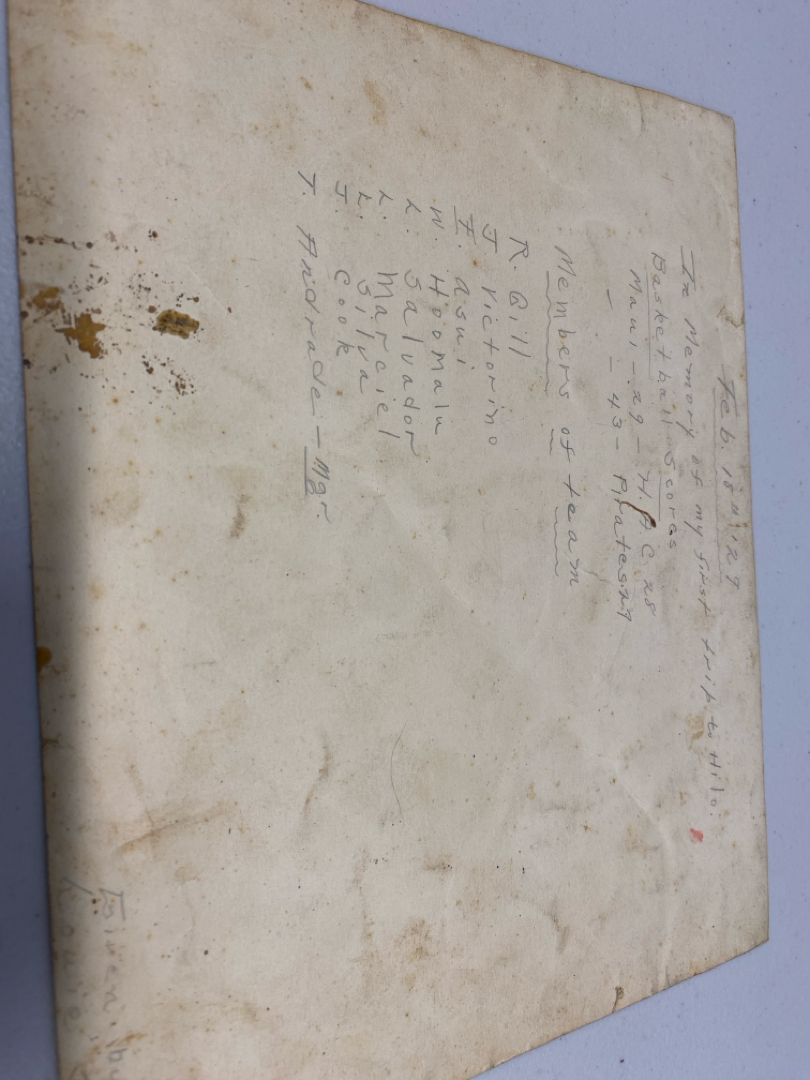 Feb. 18 '29
In Memory of my first trip to Hilo.
Basketball Scores
Maui - 29 - H.A.C. 28
- - 43 - Pirates 29
Members of team
R. Gill
J Victorino
F. Asui
W. Hoomalu
L. Salvador
L. Marciel
L. Silva
J. Cook
T. Andrade - Mgr.
Given by
Louie